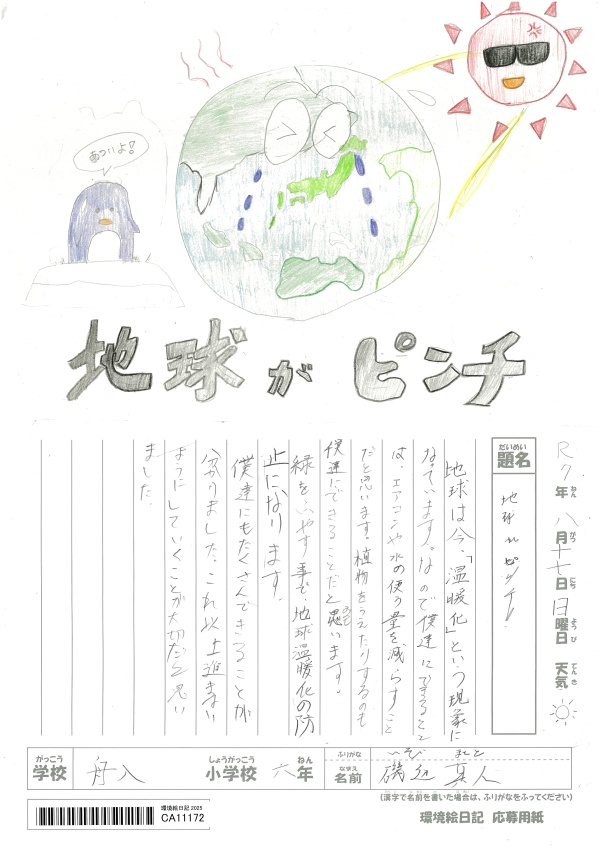 あついよ!
地球がピンチ
R7年 八月十七日 日曜日 天気
ねん がつ にち ようび てんき
だいめい
題名
地球がピンチ!
地球は今、「温暖化」という現象に
なっています。なので僕達にできること
は、エアコンや水の使う量を減らすこと
だと思います。植物をうえたりするのも
僕達にできることだと思います。
緑をふやす事で、地球温暖化の防
止になります。
僕達にもたくさんできることが
分かりました。これ以上進まない
ようにしていくことが大切だと思い
ました。
がっこう
学校
舟入
しょうがっこう
小学校
六
ねん
年
ふりがな
いそべ まこと
なまえ
名前
磯辺 真人
(漢字で名前を書いた場合は、ふりがなをふってください)
環境絵日記 応募用紙
環境絵日記 2025
CA11172